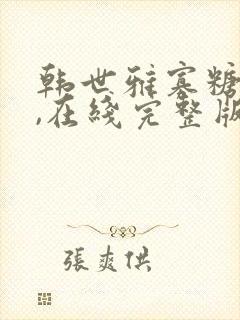 韩世雅塞糖
,在线完整版
張爽供